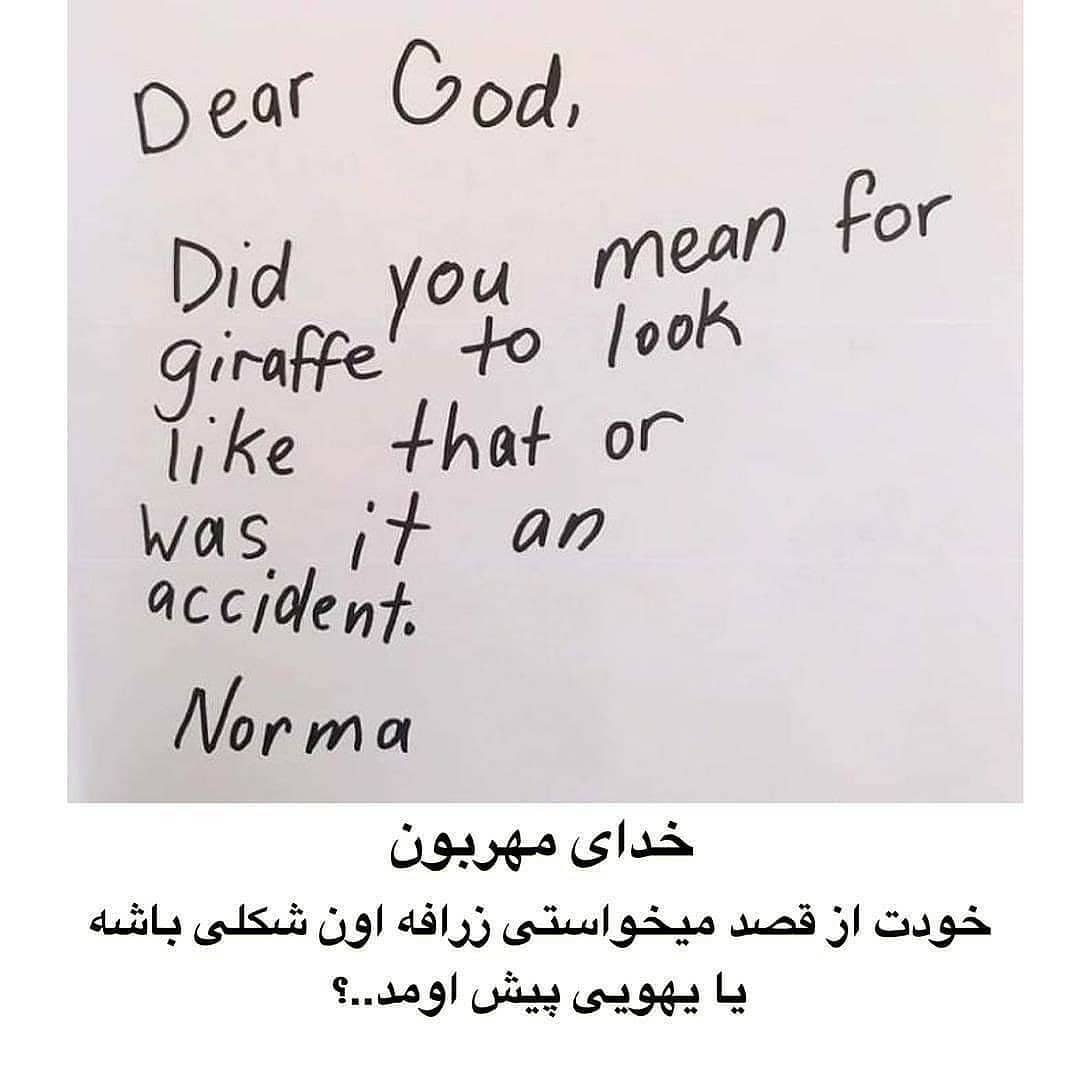 Dear God,
Did you mean for
giraffe to look
like that or
was it an
accident.
Norma
خدای مهربون
خودت از قصد میخواستی زرافه اون شکلی باشه
یا یهویی پیش اومد..؟